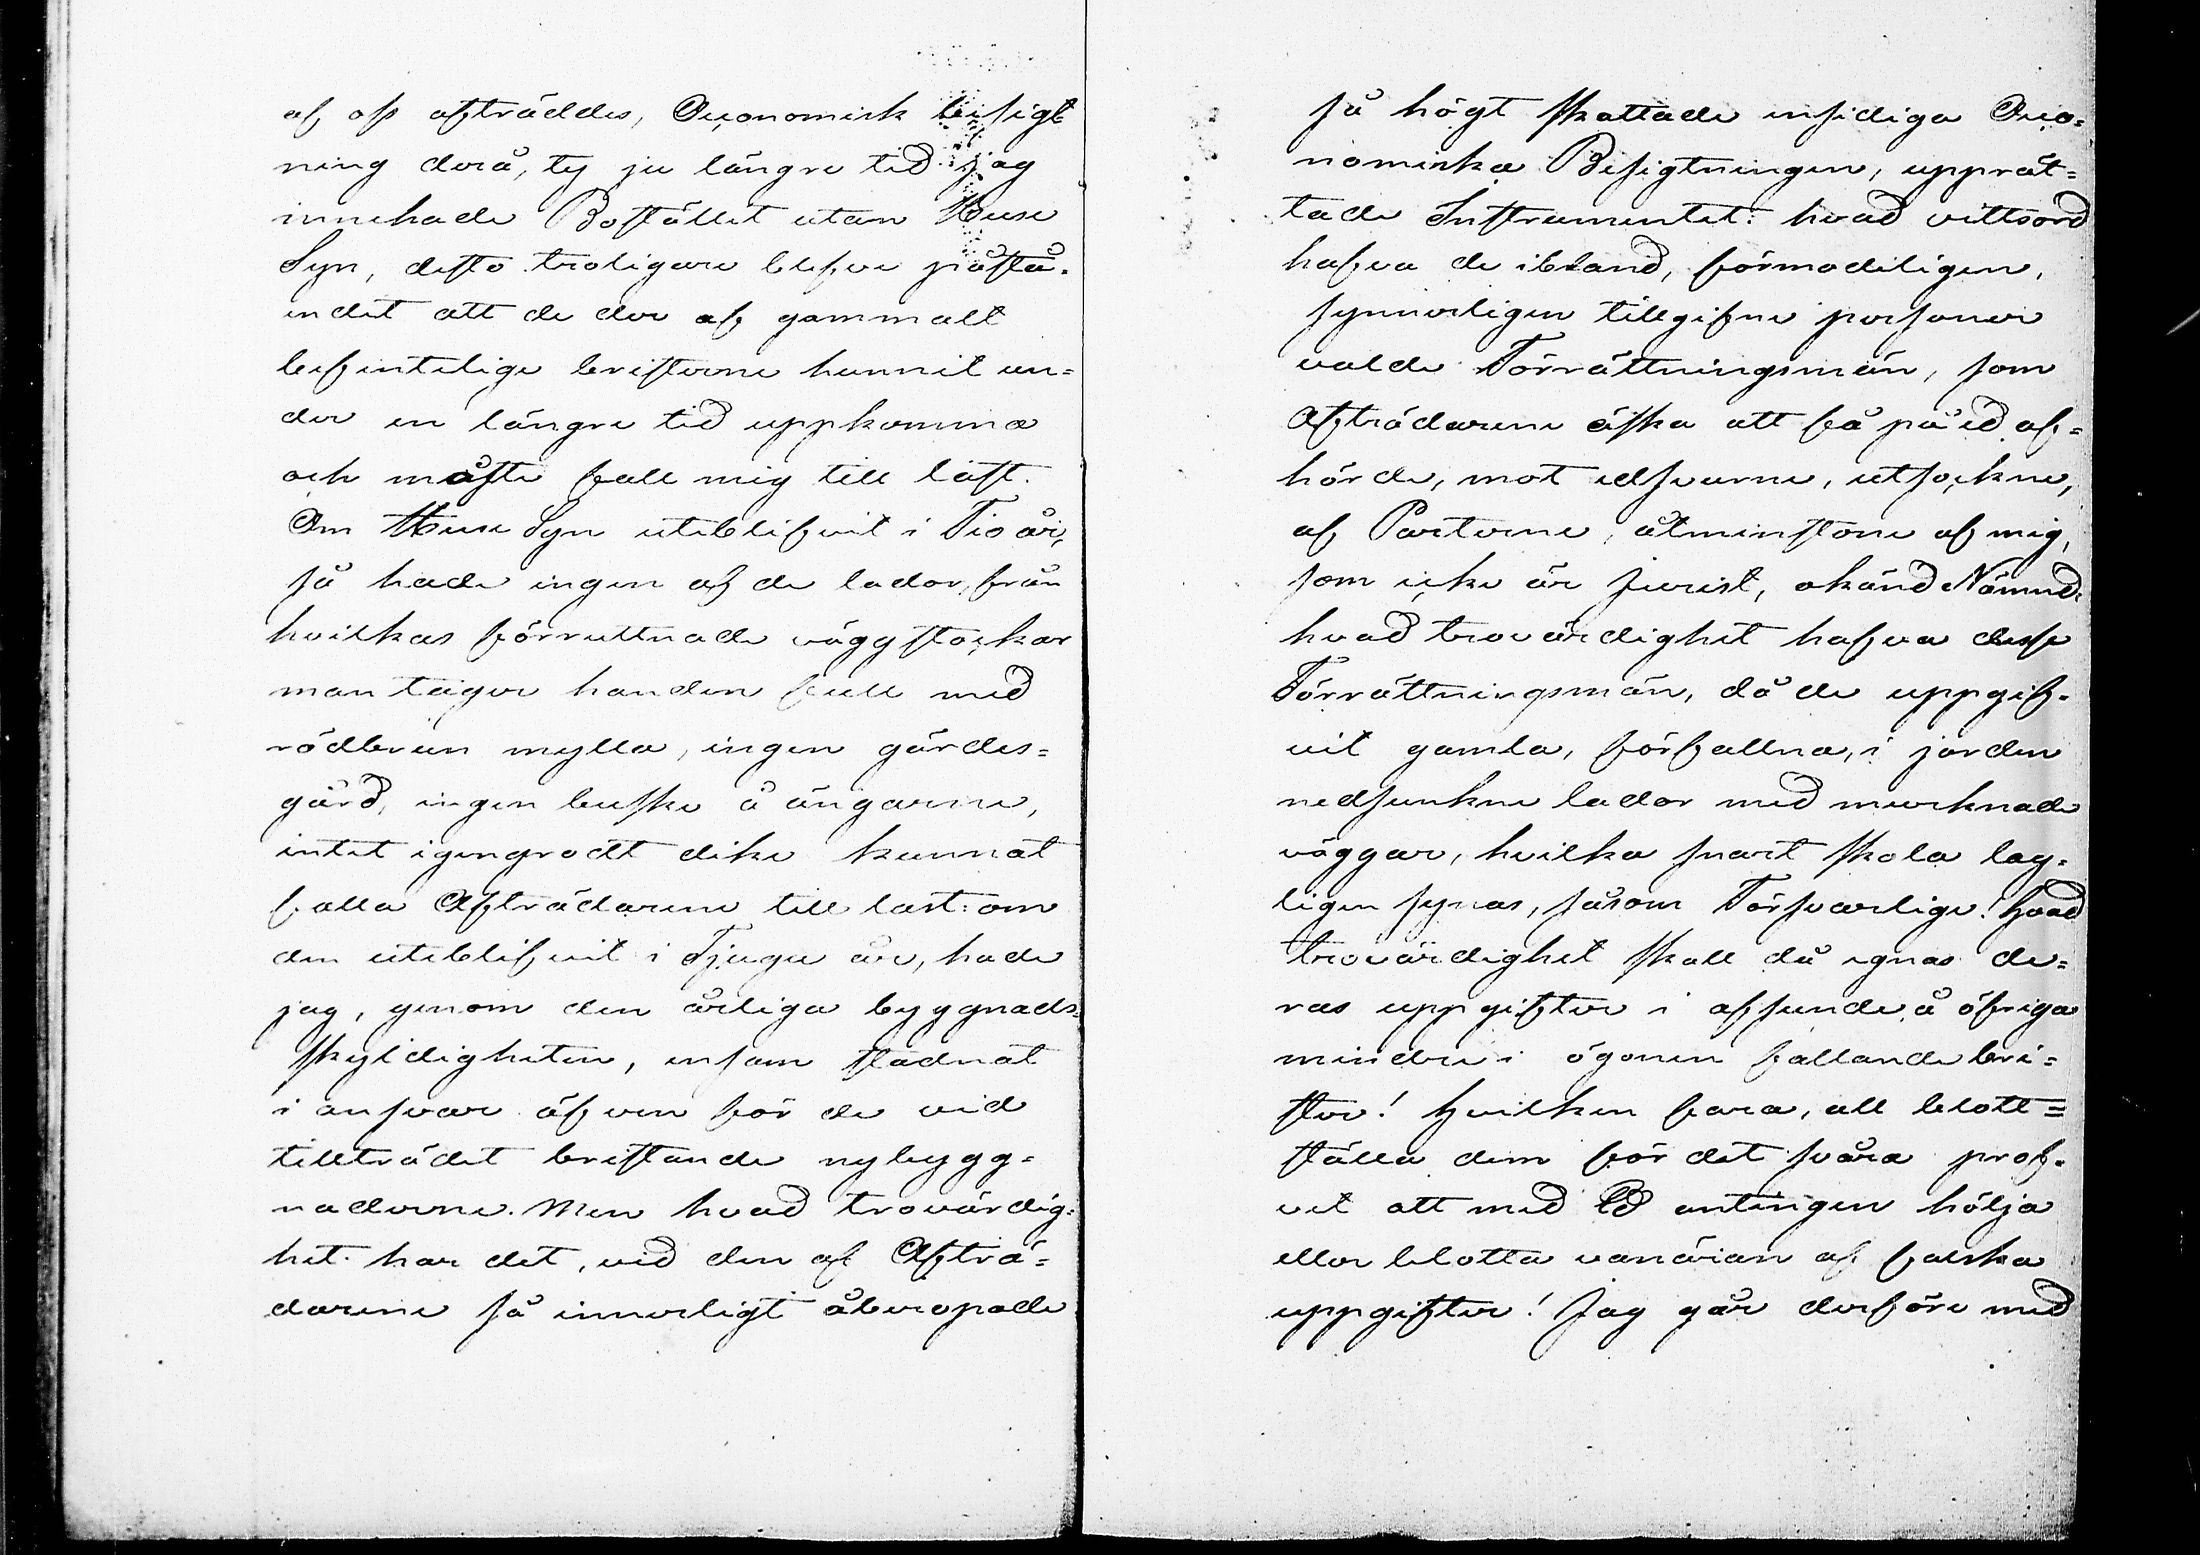 af oss afträddes, Oeconomisk besigt
ning derå, ty ju längre tid jag
innehade Bostället utan Huse
Syn, desto troligare blefve påstå-
endet att de der af gammalt
befinteliga bristerne hunnit un=
der en längre tid uppkomma
och måste fall mig till last.
Om Huse Syn uteblifvit i Tio år,
så hade ingen af de lador, från
hvilkas förruttnade väggstockar
man tager handen full med
rödbrun mylla, ingen gärdes=
gård, ingen buske å ängarne,
intet igengrodt dike kunnat
falla Afträdarene till last: om
den uteblifvit i Tjugu år, hade
jag, genom den årliga byggnads-
skyldigheten, ensam stadnat
i ansvar äfven för de vid
tillträdet bristande nybygg=
naderne. Men hvad trovärdig=
het har det, vid den af Afträ=
darene så innerligt åberopade
så högt skattade ensidiga Oeco=
nomiska Besigtningen, upprät=
tade Instrumentet: hvad vittsord
hafva de ibland, förmodeligen,
synnerligen tillgifne personer
valde Förrättningsmän, som
Afträdarene äska att få på ed af=
hörde, mot edsvurne, utsockne,
af Parterne, åtminstone af mig,
som icke är Jurist, okänd Nämnd.
hvad trovärdighet hafva desse
Förrättningsmän, då de uppgif-
vit gamla, förfallna, i jorden
nedsunkne lador med murknade
väggar, hvilka snart skola lag=
ligen synas, såsom Försvarlige! Hvad
trovärdighet skall då egnas de=
ras uppgifter i afseende å öfriga
mindre i ögonen fallande bri=
ster! Hvilken fara, att blott=
ställa dem för det svåra prof-
vet att med Ed antingen hölja
eller blotta vanäran af falska
uppgifter! Jag går derföre med